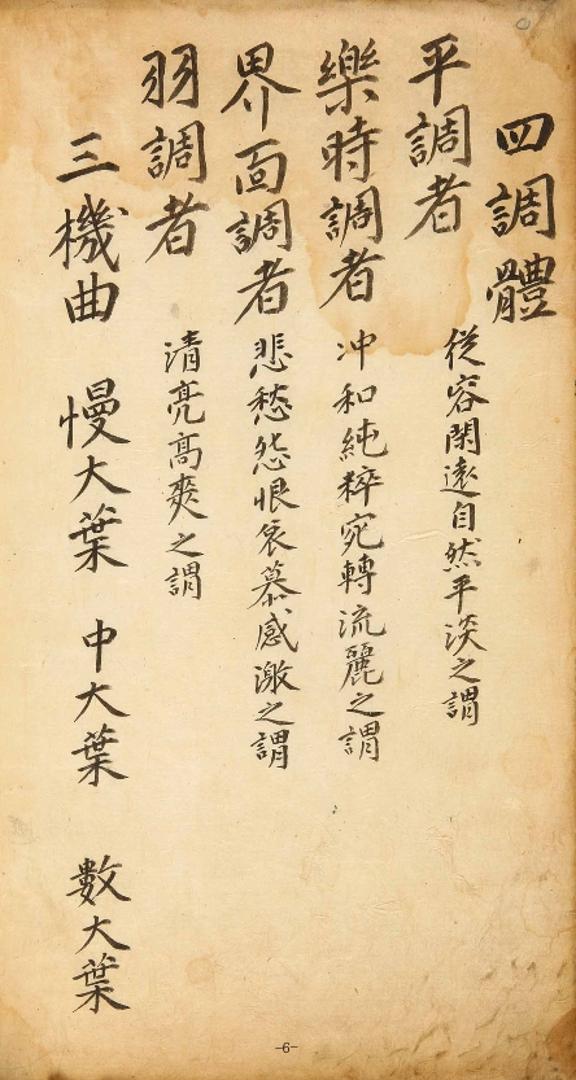 四調體
平調者 從容閑遠自然平淡之謂
樂時調者 冲和純粹宛轉流麗之謂
界面調者 悲愁怨恨哀慕感激之謂
羽調者 清亮高爽之謂
三機曲 慢大葉 中大葉 數大葉
-6-